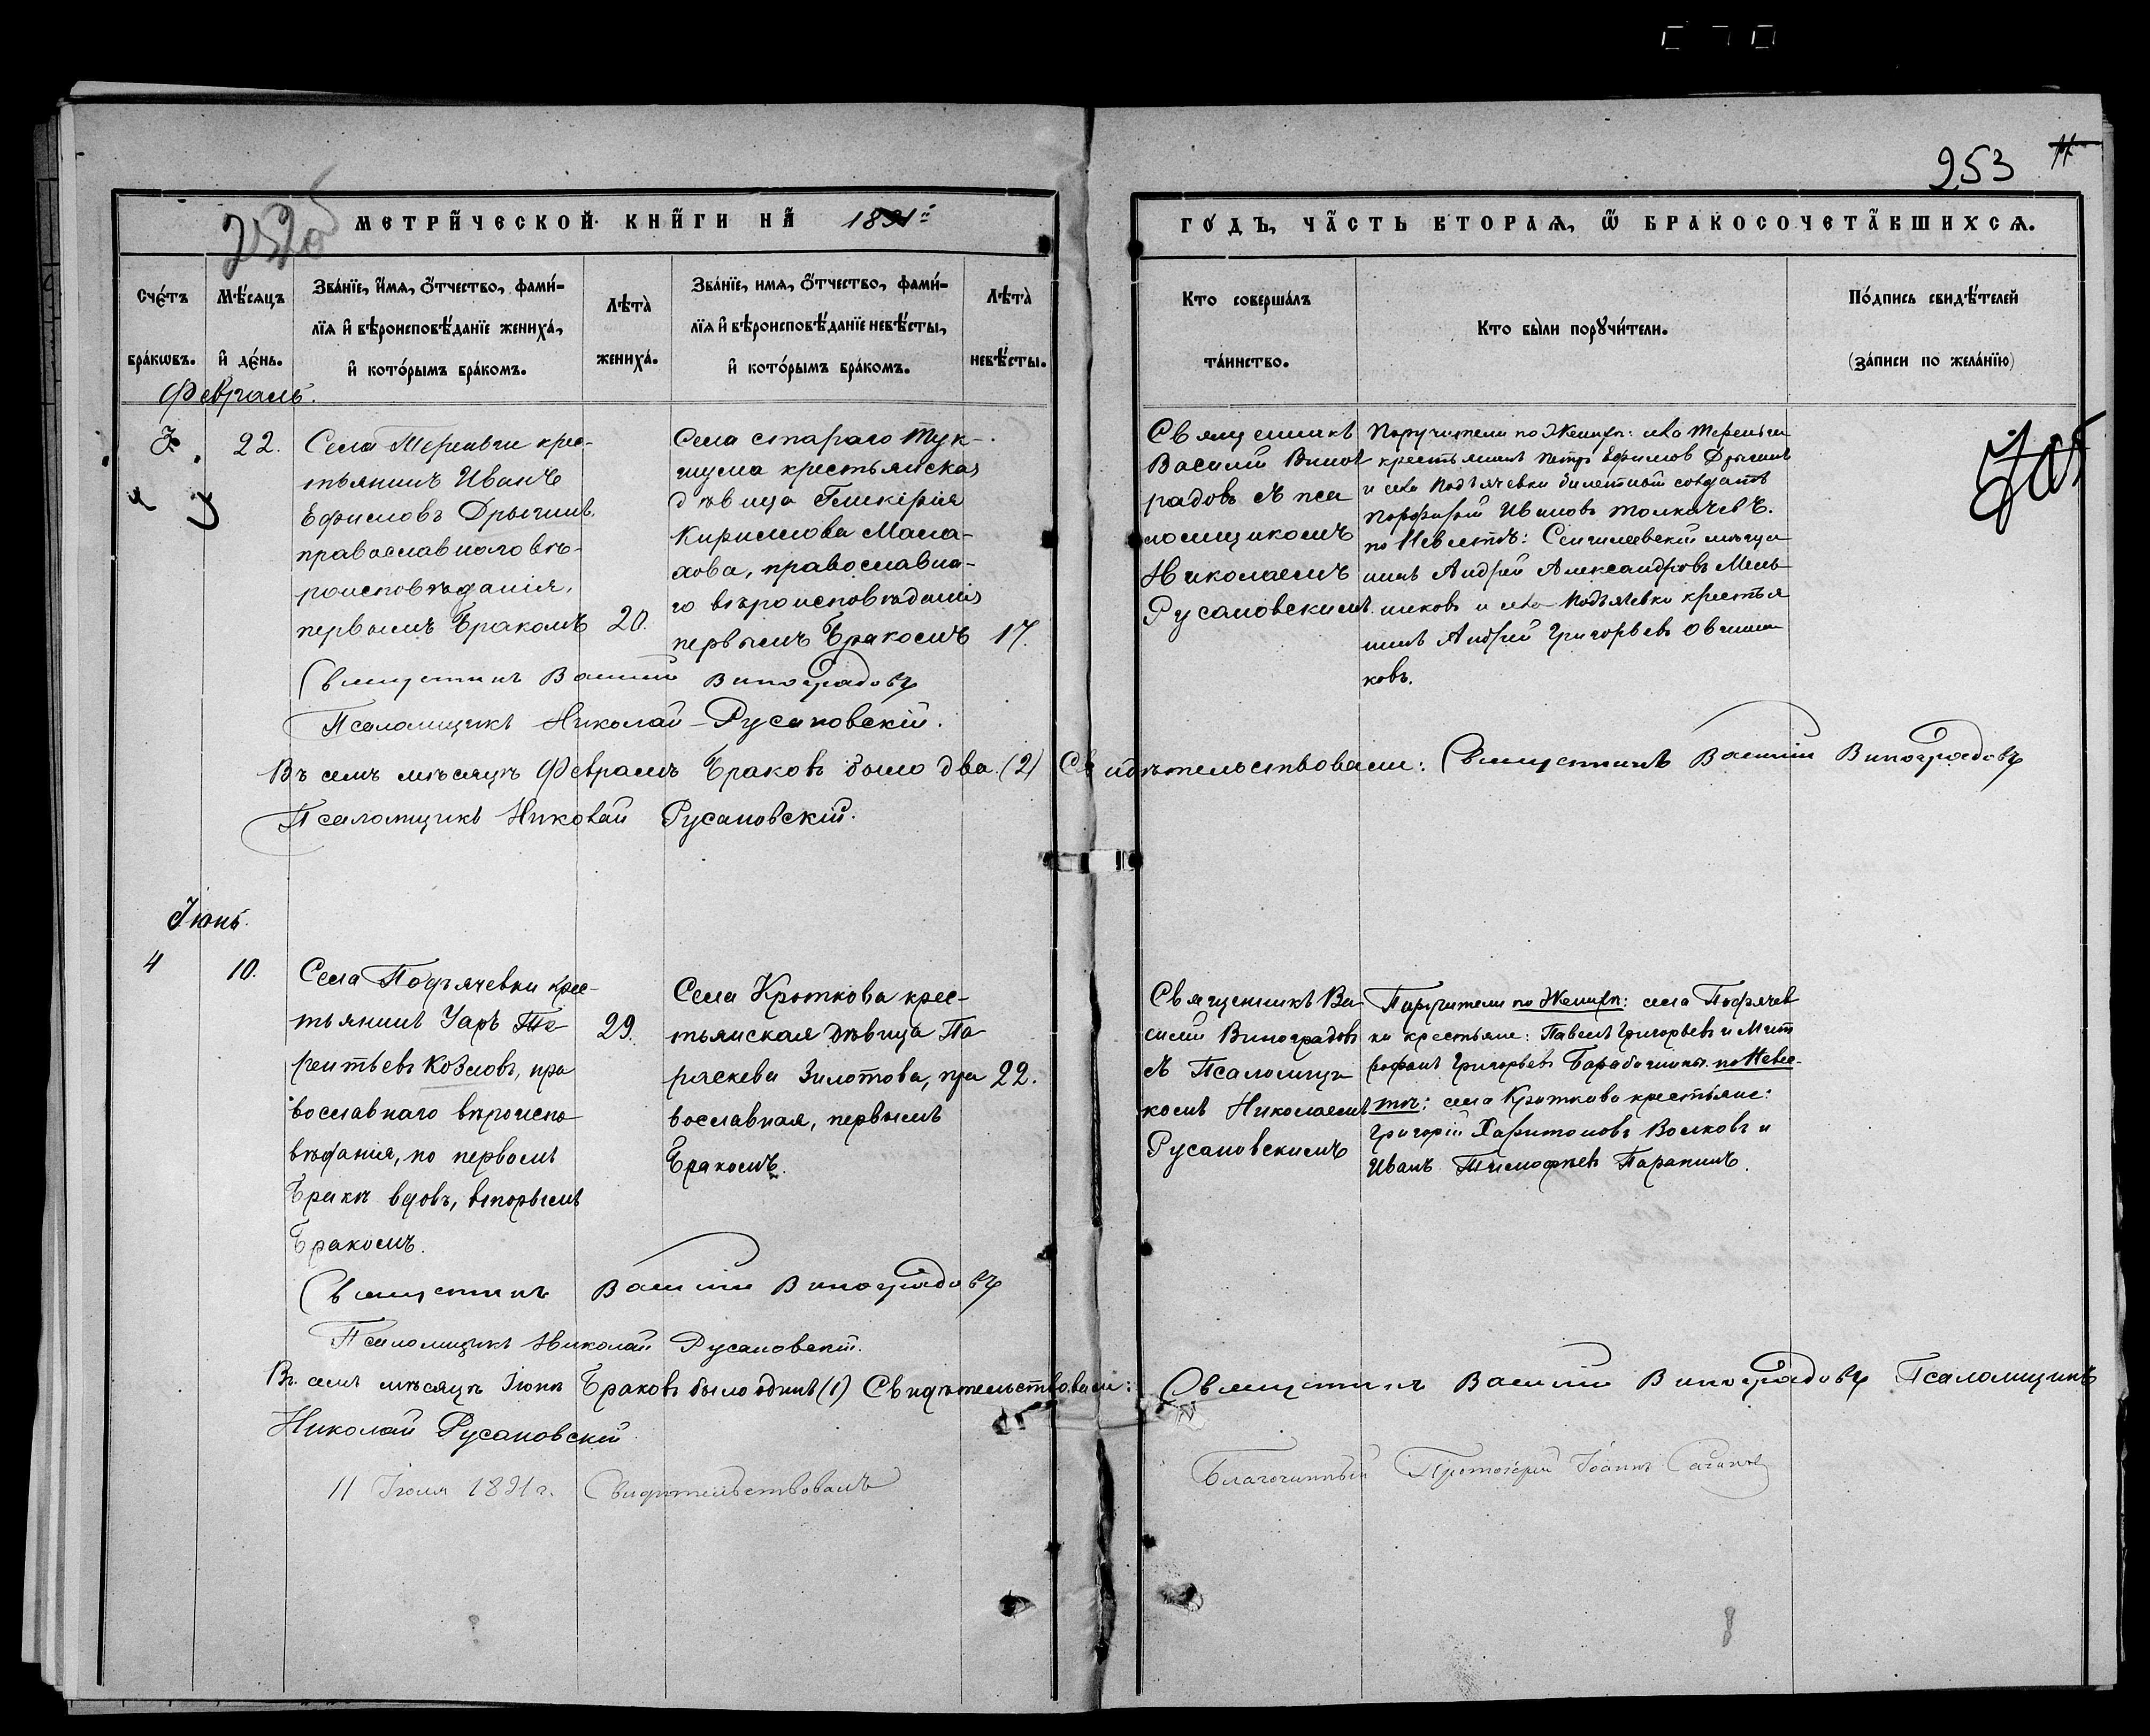 953
МЕТРИЧЕСКОЙ КНИГИ НА 1891й
ГОДЪ, ЧАСТЬ ВТОРАЯ, Ѿ БРАКОСОЧЕТАВШИХСЯ.
Счетъ браковъ.
Мѣсяцъ и день.
Званіе, имя, отчество, фами-
лія и вѣроисповѣданіе жениха,
и которымъ бракомъ.
Лѣта жениха.
Званіе, имя, отчество, фами-
лія и вѣроисповѣданіе невѣсты,
и которымъ бракомъ.
Лѣта невѣсты.
Кто совершалъ
таинство.
Кто были поручители.
Подпись свидѣтелей
(записи по желанію)
Февраль.
22.
Села Тереньги крес-
тьянинъ Иванъ
Ефимовъ Дрыгинъ,
православнаго вѣ-
роисповѣданія,
первымъ бракомъ
20.
Села стараго Тук-
шума крестьянская
дѣвица Гликерія
Кириллова Мала-
хова, православна-
го вѣроисповѣданія
первымъ бракомъ
17.
Священникъ
Василій Виног
радовъ съ пса
ломщикомъ
Николаемъ
Русановскимъ.
Поручители по Женихѣ: села Тереньги
крестьянинъ Петръ Ефимовъ Дрыгинъ
и села Подъячевки билетный солдатъ
Порфирій Ивановъ Толкачевъ.
по Невѣстѣ: Сенгилеевскій мѣща
нинъ Андрей Александровъ Мель
никовъ и села Подъячевки крестья
нинъ Андрей Григорьевъ Овчинни
ковъ.
Священникъ Василій Виноградовъ
Псаломщикъ Николай Русановскій.
Въ семъ мѣсяцѣ Февралѣ браковъ было два (2) Свидѣтельствовали: Священникъ Василій Виноградовъ
Псаломщикъ Николай Русановскій.
Іюнь.
4
10.
Села Подъячевки крес-
тьянинъ Уаръ Те-
рентьевъ Козловъ, пра
вославнаго вѣроиспо
вѣданія, по первомъ
бракѣ вдовъ, вторымъ
бракомъ.
29.
Села Кроткова крес-
тьянская дѣвица Па
раскева Золотова, пра
вославная, первымъ
бракомъ.
22.
Священникъ Ва
силій Виноградовъ
съ Псаломщи
комъ Николаемъ
Русановскимъ
Поручители по Женихѣ: села Подъячев
ки крестьяне: Павелъ Григорьевъ и Мит
рофанъ Григорьевъ Барабошины. по Невѣс-
тѣ: села Кроткова крестьяне:
Григорій Харитоновъ Волковъ и
Иванъ Тимофѣевъ Паранинъ.
Священникъ Василій Виноградовъ
Псаломщикъ Николай Русановскій.
Въ семъ мѣсяцѣ Іюнѣ браковъ было одинъ (1) Свидѣтельствовали: Священникъ Василій Виноградовъ Псаломщикъ
Николай Русановскій
11 Іюля 1891 г. Свидѣтельствовалъ Благочинный Протоіерей Іоаннъ